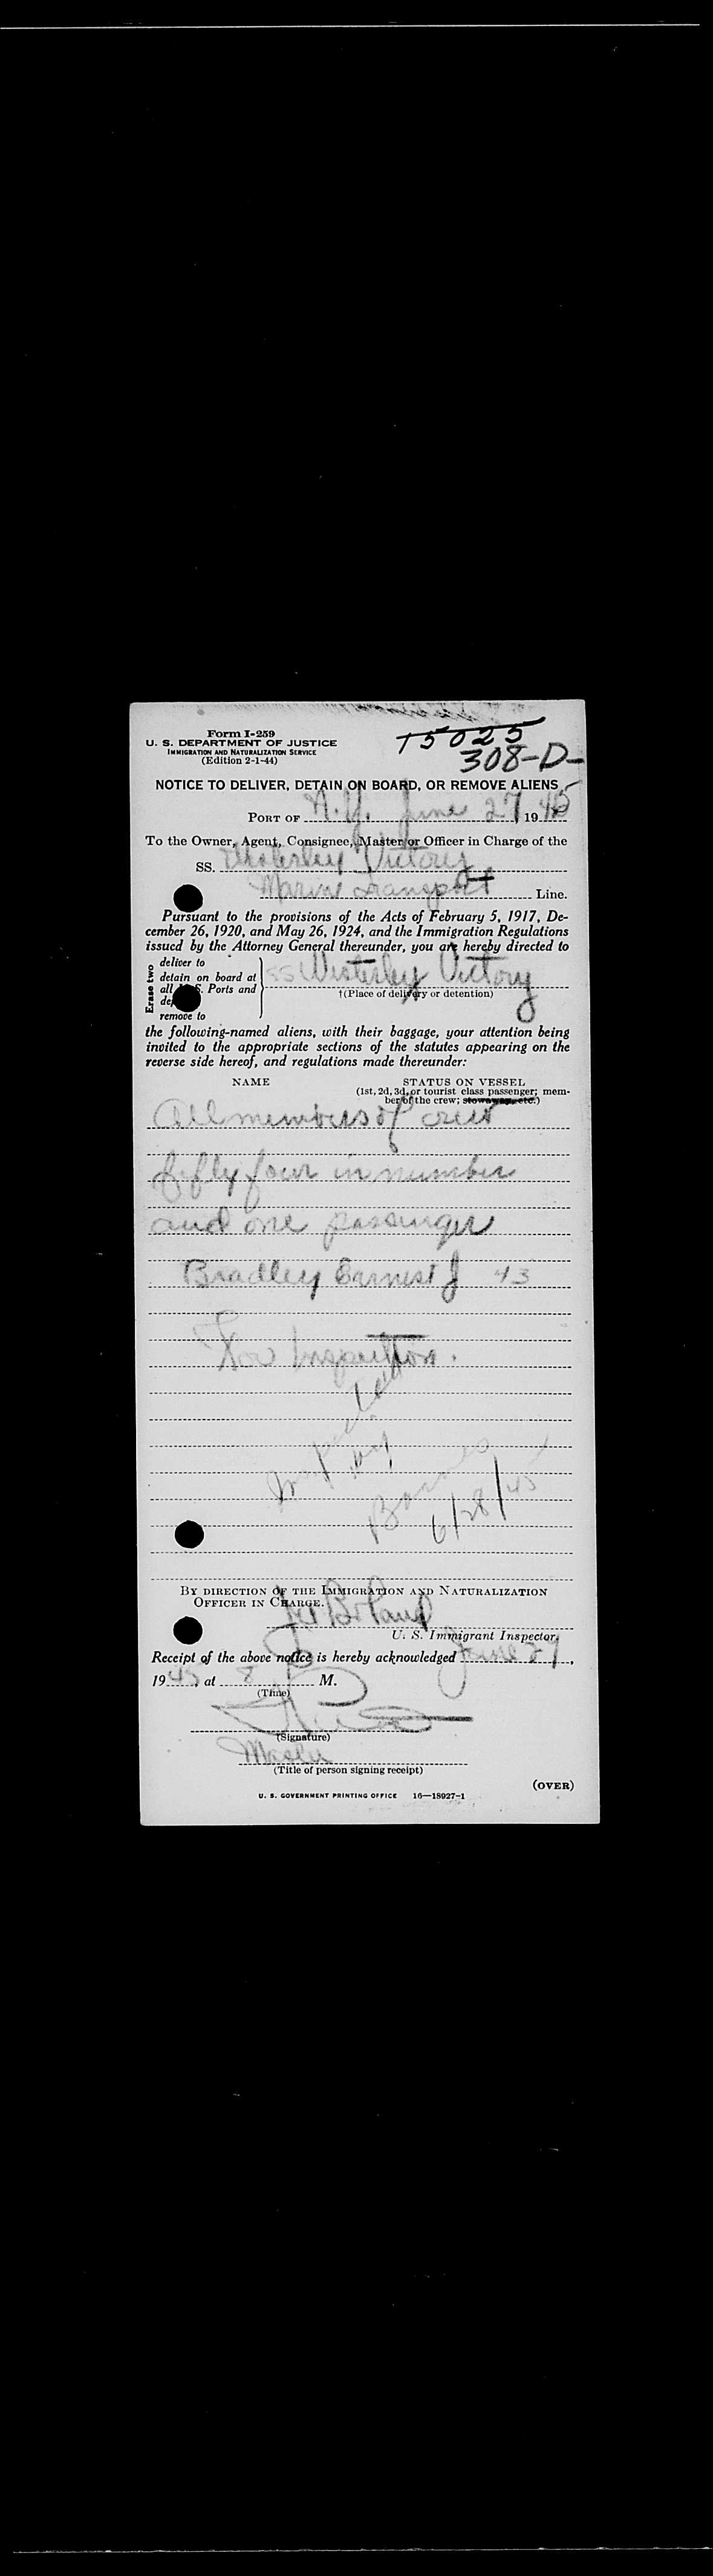 Form I-259
15025
U. S. DEPARTMENT OF JUSTICE
308-D-
IMMIGRATION AND NATURALIZATION SERVICE
(Edition 2-1-44)
NOTICE TO DELIVER, DETAIN ON BOARD, OR REMOVE ALIENS
PORT OF N.Y. June 27, 1945
To the Owner, Agent, Consignee, Master or Officer in Charge of the
SS. Westerley Victory
Marine Transport Line.
Pursuant to the provisions of the Acts of February 5, 1917, De-
cember 26, 1920, and May 26, 1924, and the Immigration Regulations
issued by the Attorney General thereunder, you are hereby directed to
Erase two
deliver to
detain on board at
all U.S. Ports and
remove to
SS Westerley Victory
†(Place of delivery or detention)
the following-named aliens, with their baggage, your attention being
invited to the appropriate sections of the statutes appearing on the
reverse side hereof, and regulations made thereunder:
NAME STATUS ON VESSEL
(1st, 2d, 3d, or tourist class passenger; mem-
ber of the crew; stowaway, etc.)
All members of crew
fifty four in number
and one passenger
Bradley Earnest J 43
For Inspection.
Inspected
by
Barnes
6/28/45
BY DIRECTION OF THE IMMIGRATION AND NATURALIZATION
OFFICER IN CHARGE.
U. S. Immigrant Inspector.
Receipt of the above notice is hereby acknowledged June 27,
1945, at 8 M.
(Time)
(Signature)
Master
(Title of person signing receipt)
(OVER)
U. S. GOVERNMENT PRINTING OFFICE 16—18927-1